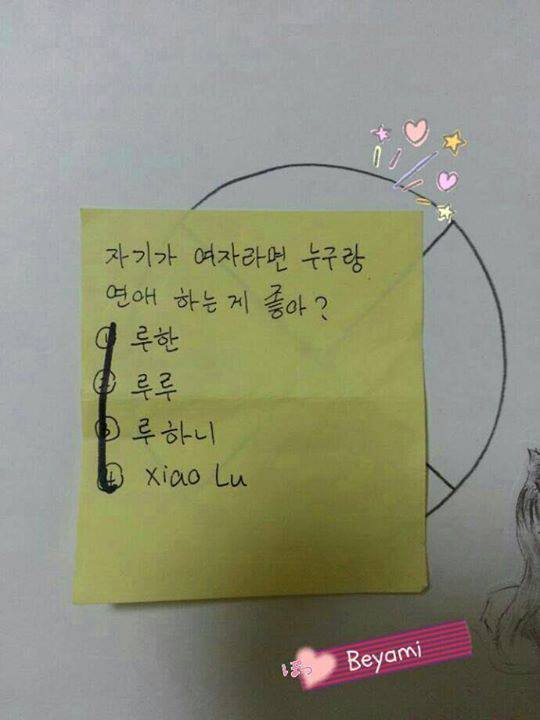 자기가 여자라면 누구랑
연애 하는게 좋아?
① 루한
② 루루
③ 루하니
④ xiao Lu
ぽっ Beyami